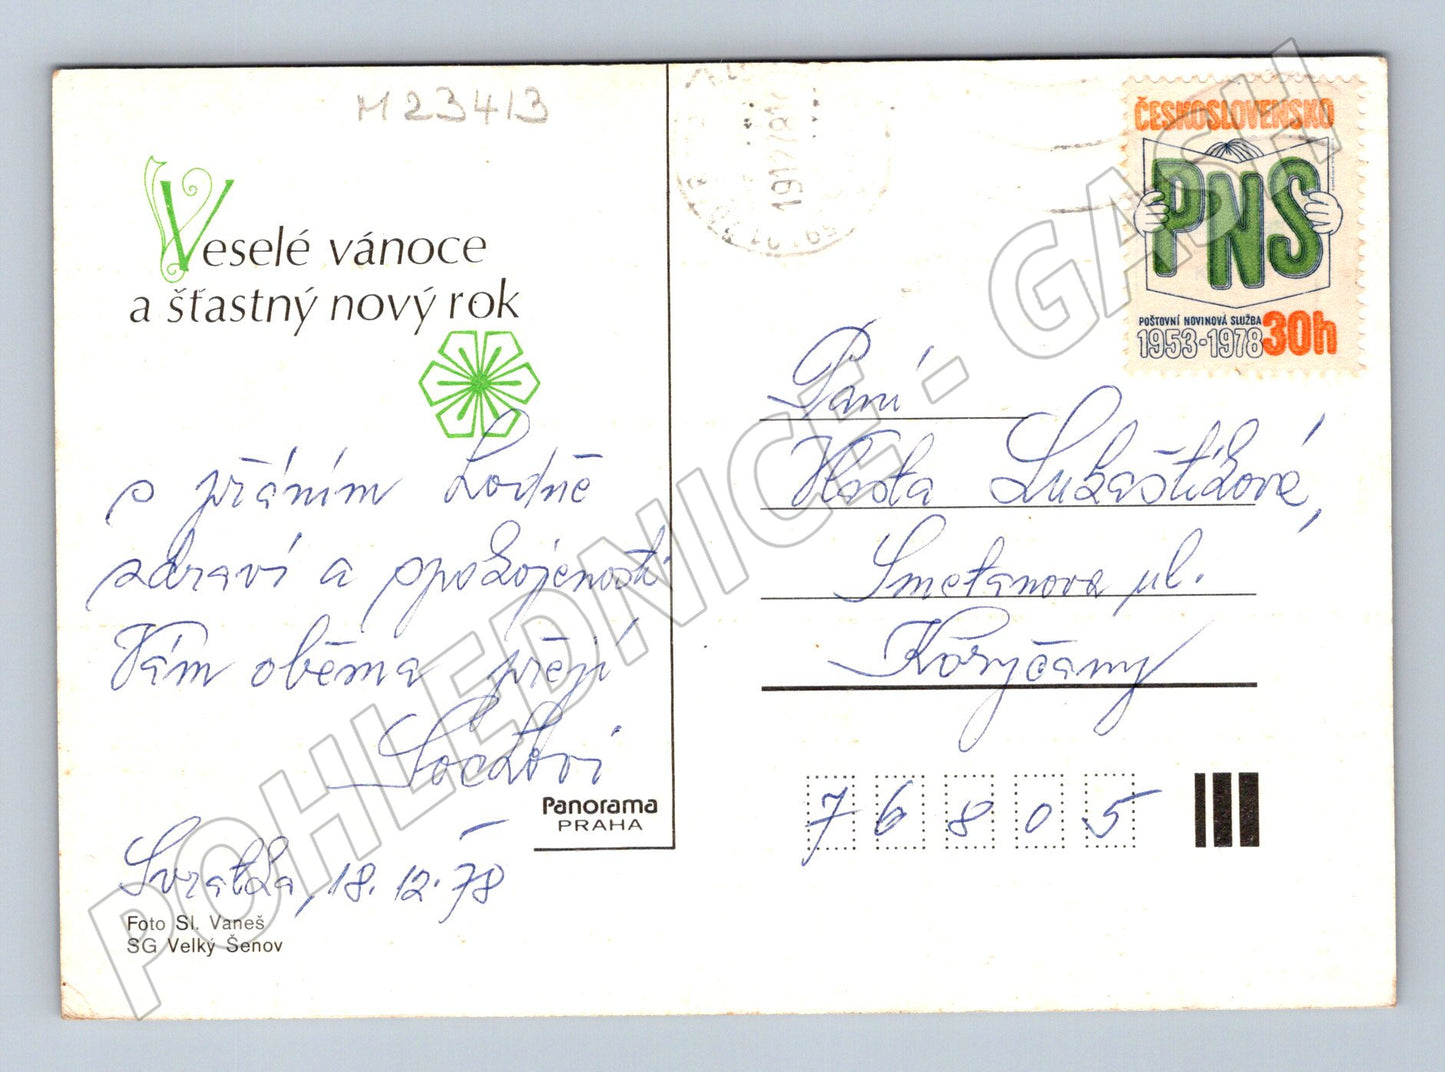 M 23413
Veselé vánoce
a šťastný nový rok
s přáním hodně
zdraví a spokojenosti
Vám oběma přejí
Sochovi
Svratka, 18.12.78
Foto Sl. Vaneš
SG Velký Šenov
Panorama
PRAHA
ČESKOSLOVENSKO
PNS
POŠTOVNÍ NOVINOVÁ SLUŽBA
1953-1978 30h
Paní
Vlasta Lukaštíková,
Smetanova ul.
Koryčany
76805
POHLEDNICE - GASH